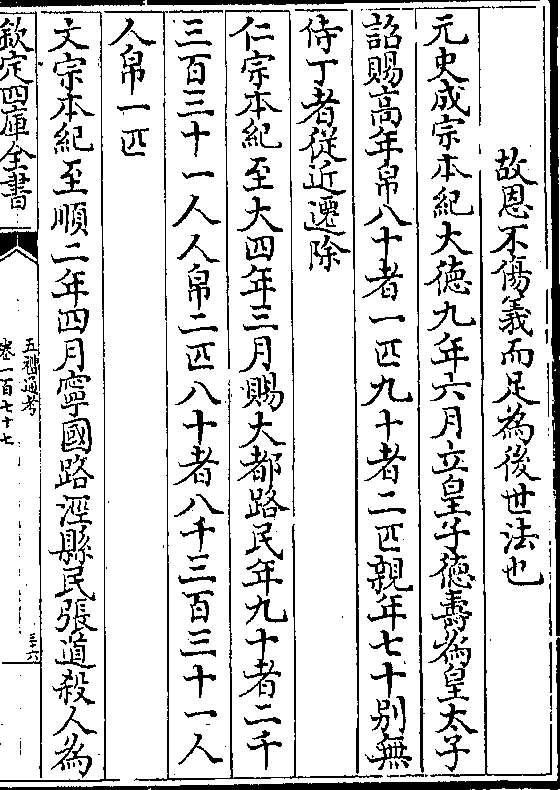 故恩不傷義而足為後世法也
元史成宗本紀大德九年六月立皇子德壽為皇太子
詔賜高年帛八十者一匹九十者二匹親年七十别無
侍丁者從近遷除
仁宗本紀至大四年三月賜大都路民年九十者二千
三百三十一人人帛二匹八十者八千三百三十一人
人帛一匹
文宗本紀至順二年四月寧國路涇縣民張道殺人為
欽定四庫全書
五禮通考
卷一百七十七
三六